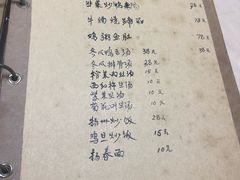 韭菜炒鸭血 28元
牛肉烧 元
鸡粥鱼肚 78元
冬瓜鸭舌汤 38元
冬瓜排骨汤 38元
榨菜肉丝汤 15元
西红柿蛋汤 10元
紫菜蛋汤 10元
菊花叶蛋汤 10元
扬州炒饭 28元
鸡旦炒饭 15元
扬春面 10元